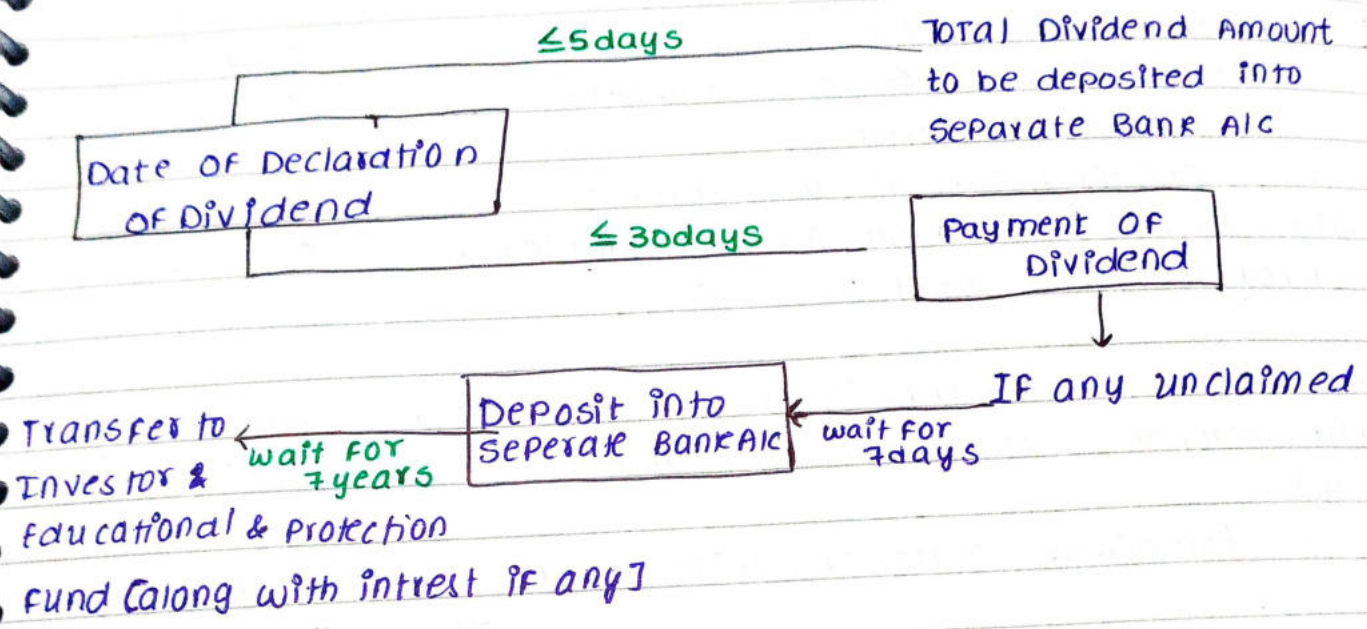 ≤5days
Total Dividend Amount
to be deposited into
Separate Bank A/c
Date of Declaration
of Dividend
≤ 30days
Payment of
Dividend
If any unclaimed
wait for
7days
Deposit into
Seperate Bank A/c
wait for
7years
Transfer to
Investor &
Educational & Protection
Fund [along with intrest if any]